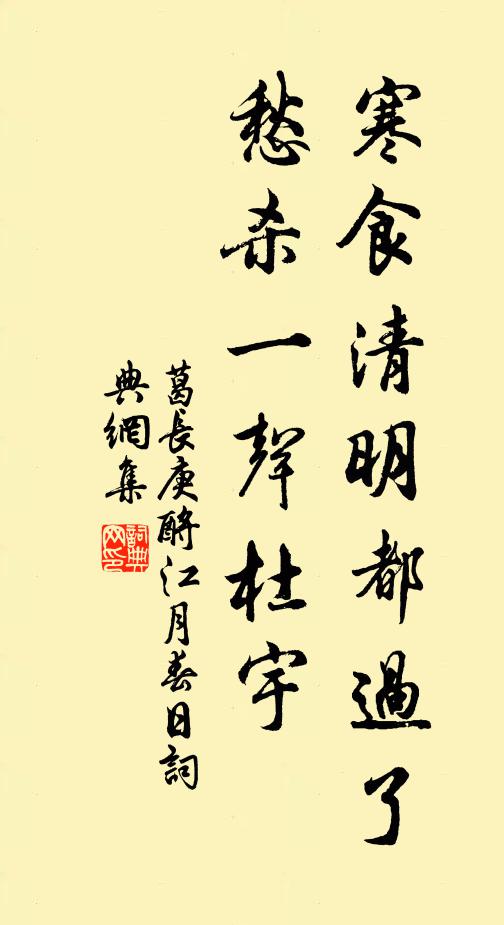 寒食清明都過了
愁杀一聲杜宇
葛長庚酹江月春日詞
典網集
詞典
网印